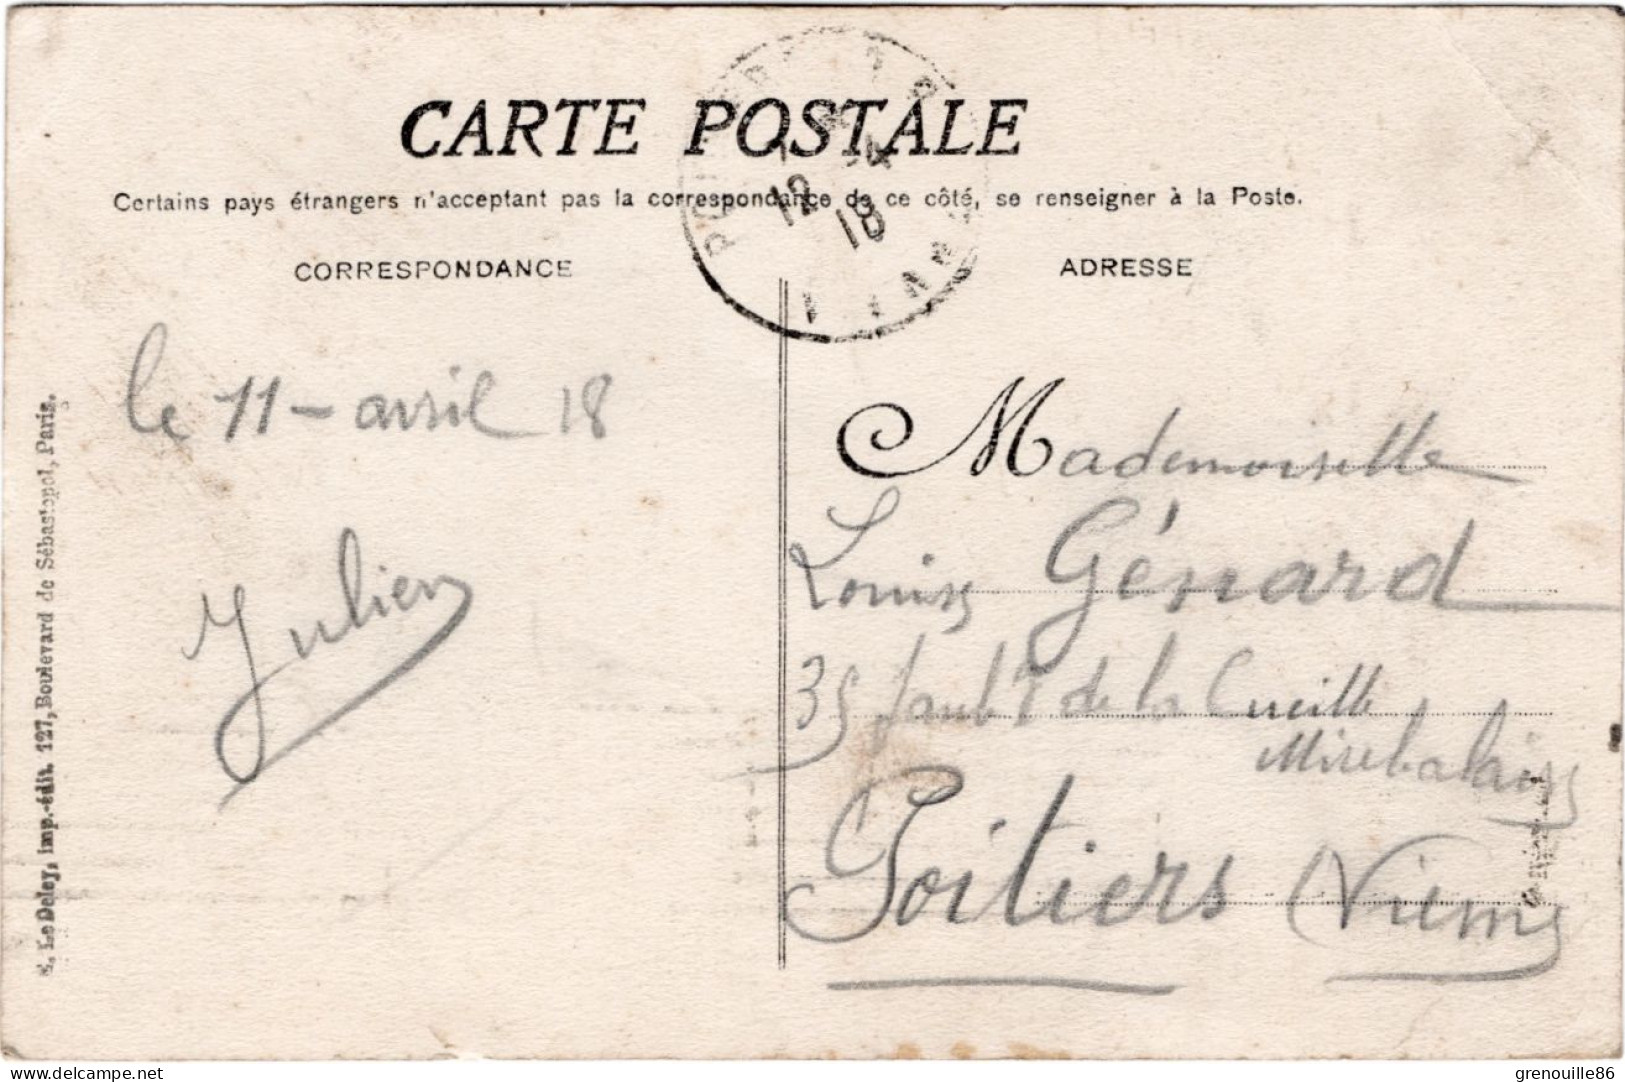 CARTE POSTALE
Certains pays étrangers n'acceptant pas la correspondance de ce côté, se renseigner à la Poste.
CORRESPONDANCE
ADRESSE
12 - 4
18
le 11 - avril 18
Julien
Mademoiselle
Louise Génard
35 faubg de la Cueille
Mirebalaise
Poitiers (Vienne
E. Le Deley, Imp.-édit. 127, Boulevard de Sébastopol, Paris.
delcampe.net
grenouille86